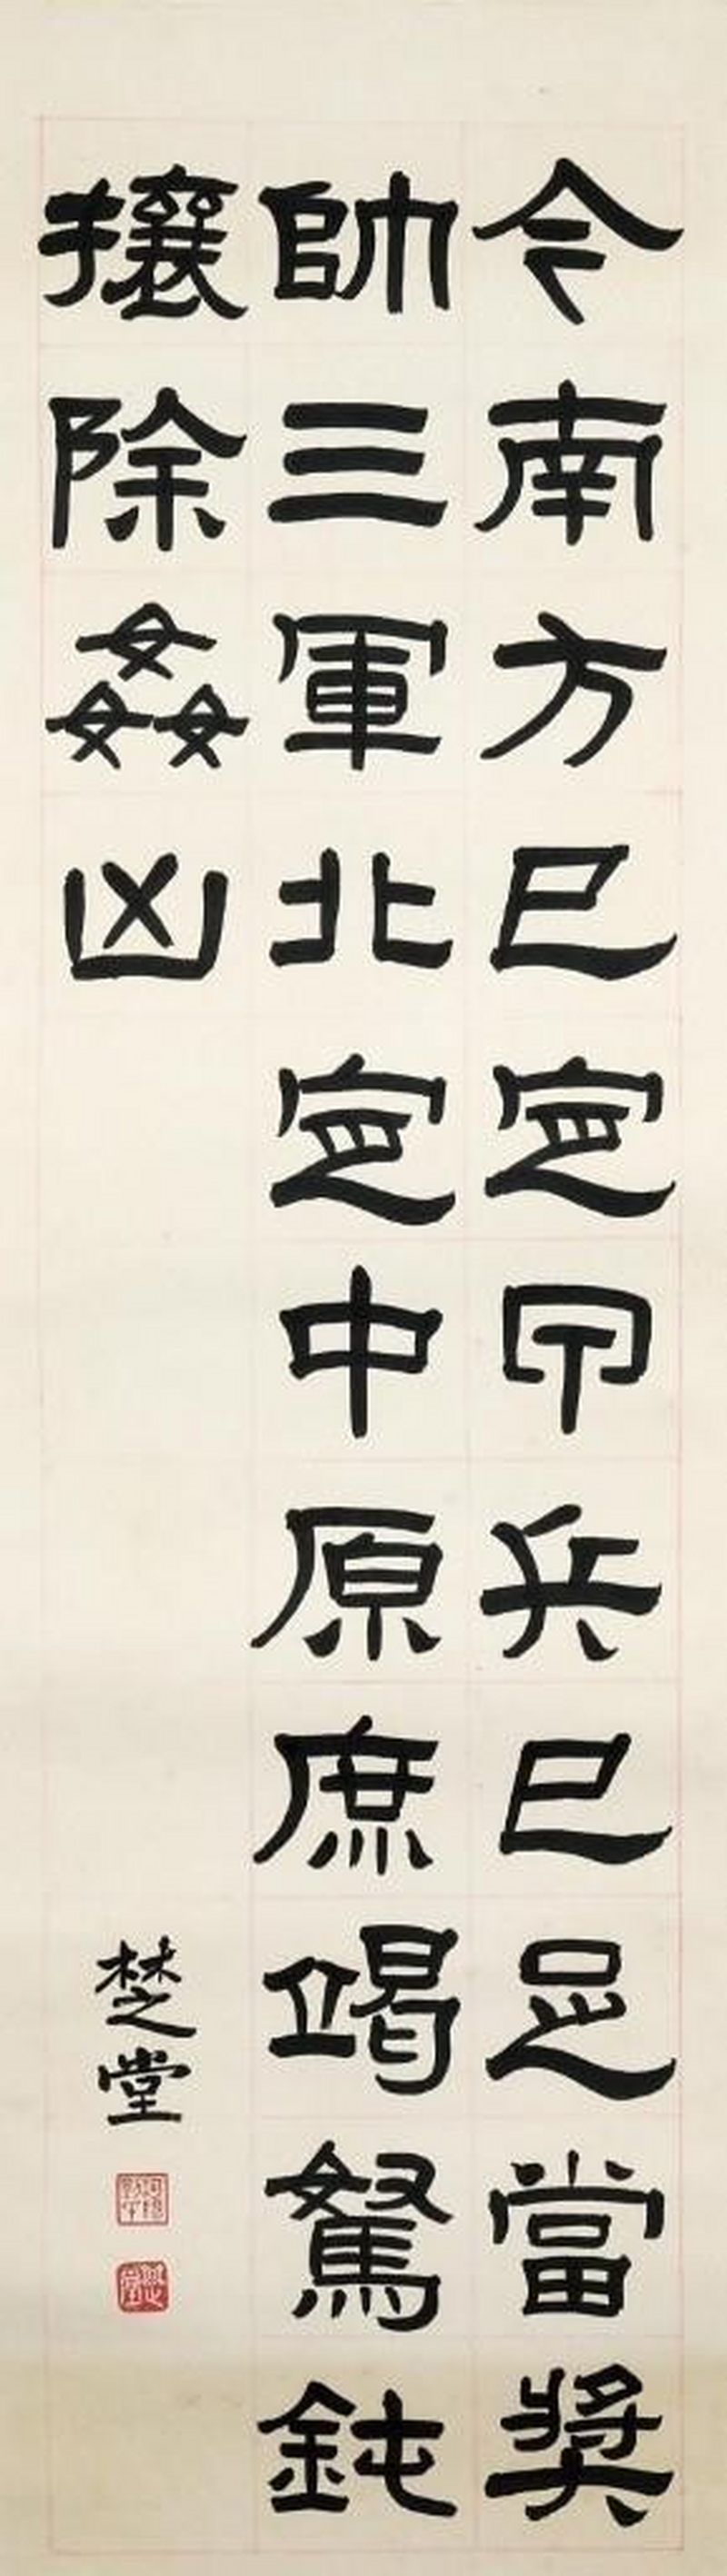 今南方已定甲兵已足當獎
帥三軍北定中原庶竭駑鈍
攘除姦凶
楚堂